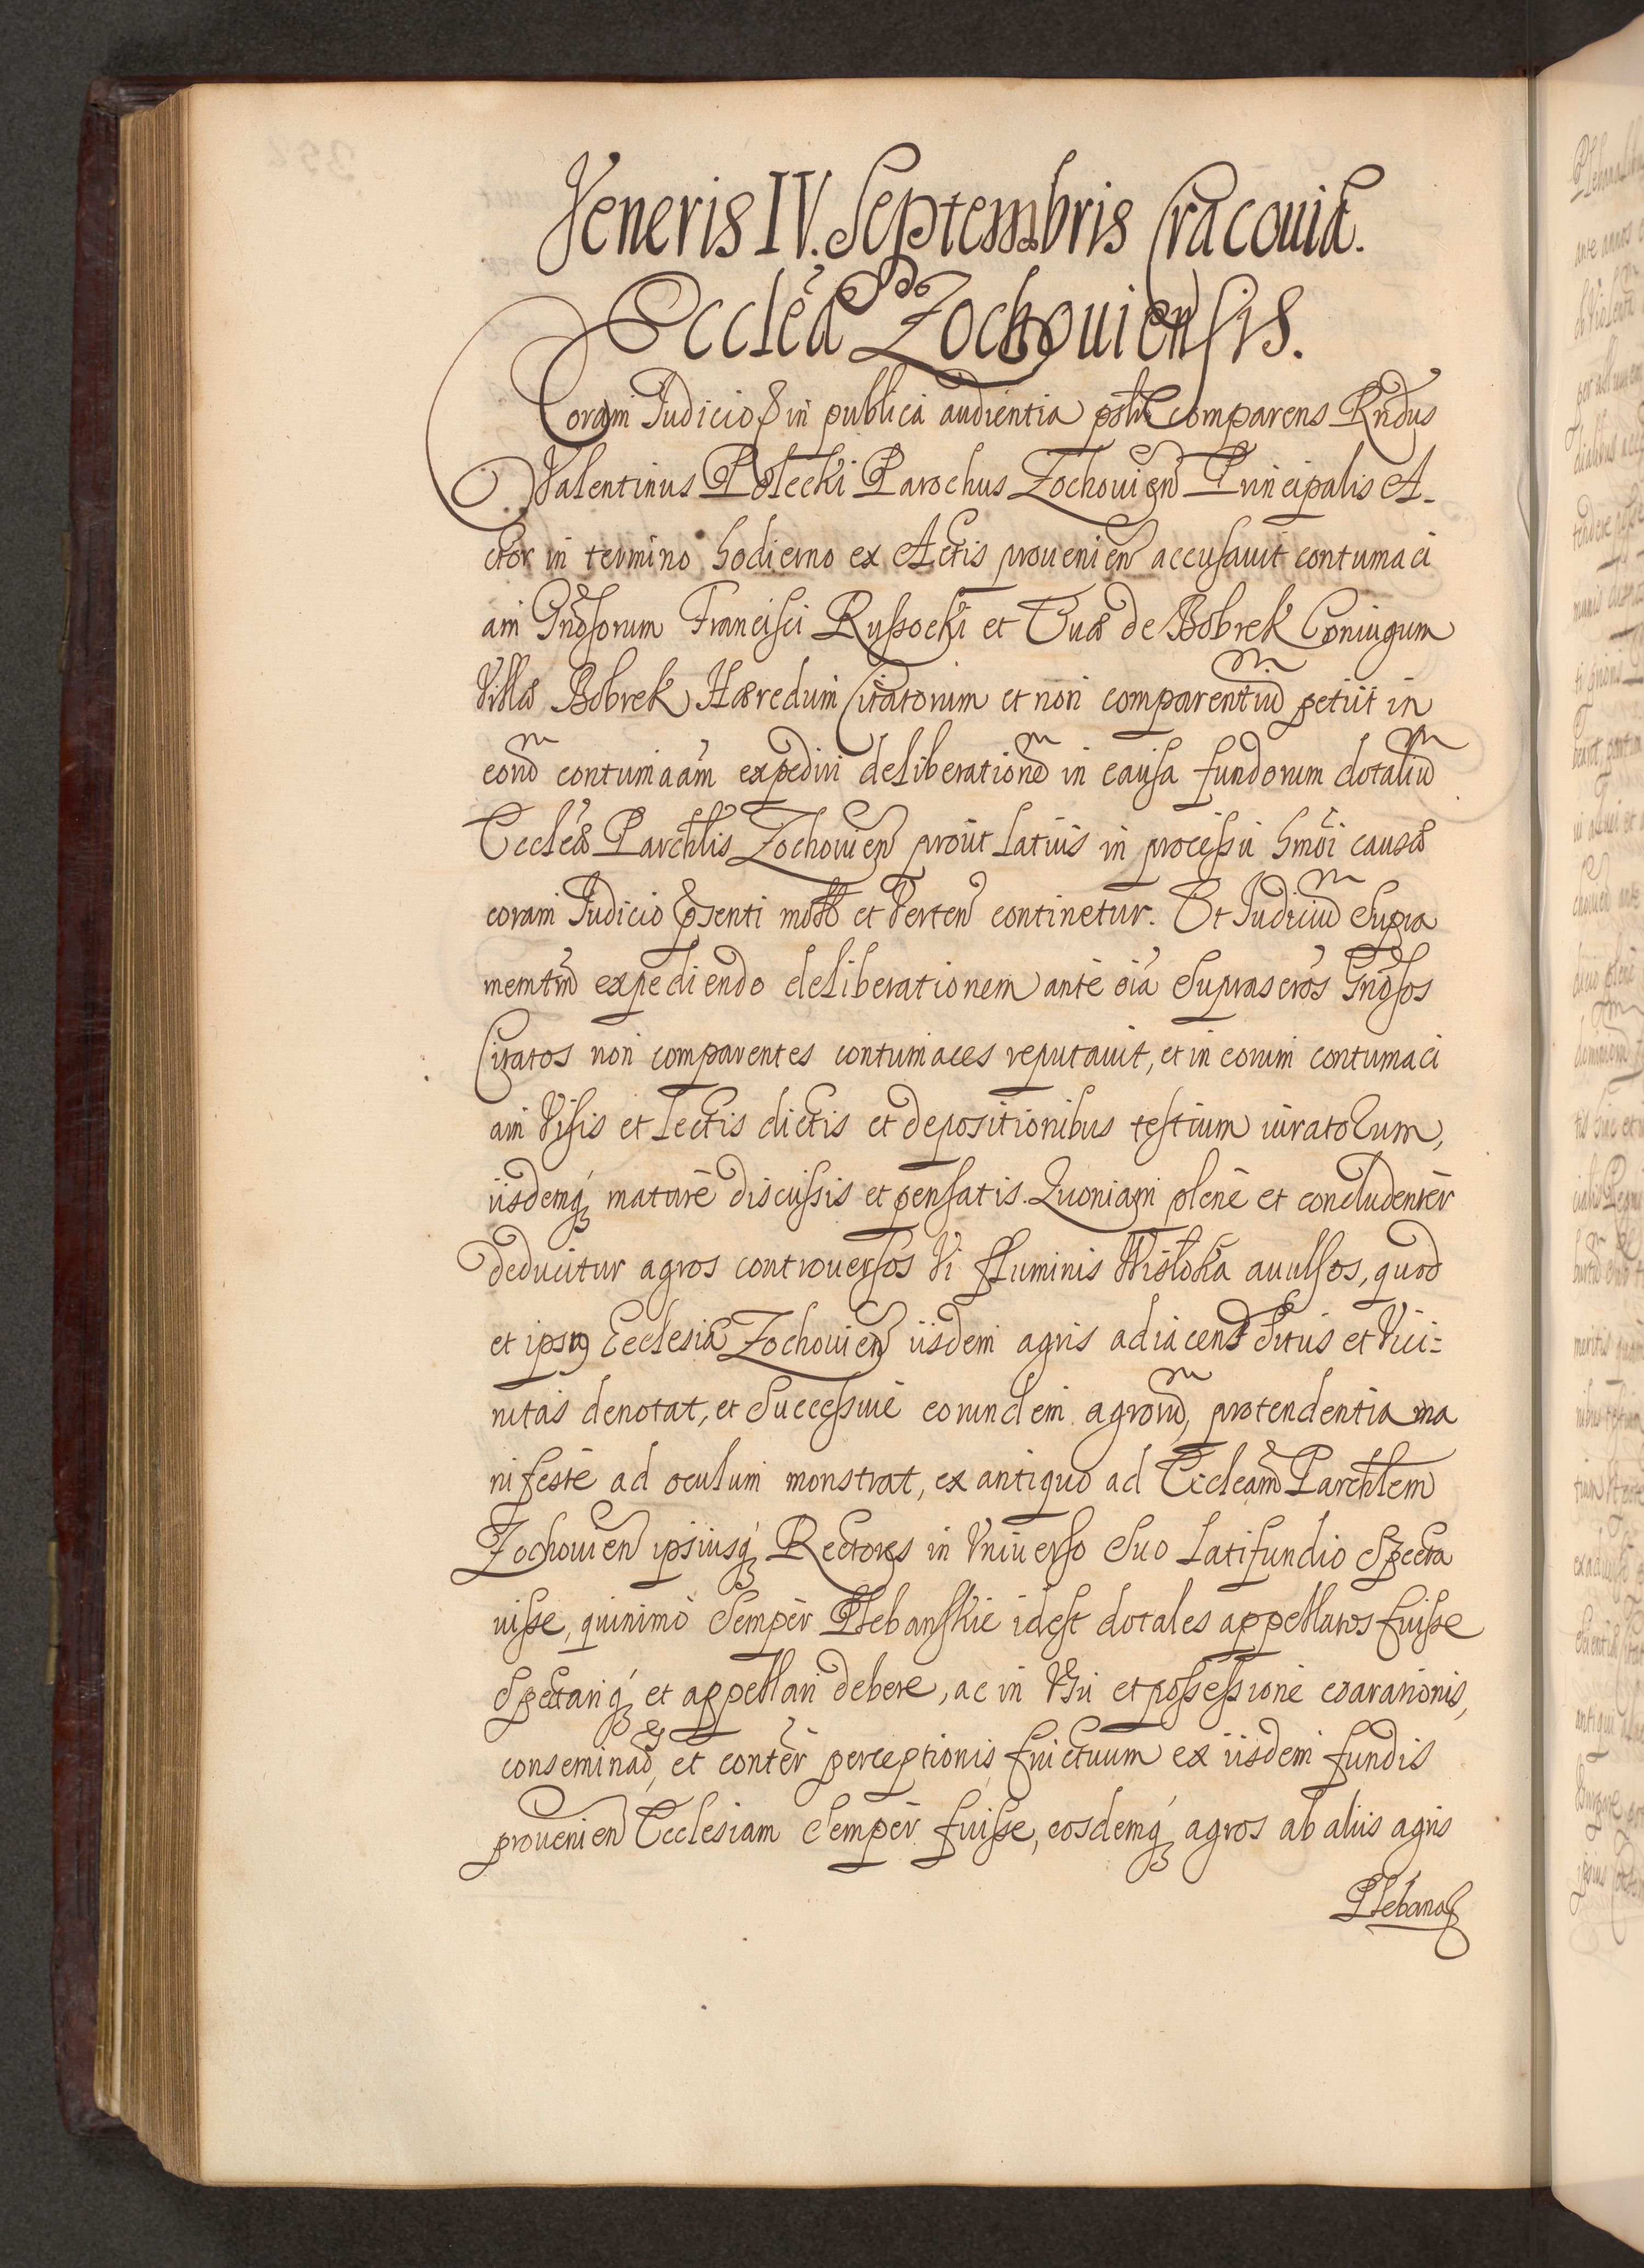 Veneris IV. Septembris Cracouiæ.
Ecclēa Zochouiensis.
Coram Iudicio & in publica audientia psnlr comparens Rndus
Valentinus Potecki Parochus Zochouien Principalis A-
ctor in termino hodierno ex Actis prouenien accusauit contumaci
am Gnosorum Francisci Russocki et Euæ de Bobrek Coniugum
Villæ Bobrek Hæredum Citatorum et non comparentium petiit in
eorum contumaām expediri deliberationem in causa fundorum dotalium
Ecclēæ Parchlis Zochouien prout latius in processu hmoi causæ
coram Iudicio psenti moto et Verten continetur. Et Iudicium Supra
memtm expediendo deliberationem ante oia Suprascros Gnosos
Citatos non comparentes contumaces reputauit, et in eorum contumaci
am Visis et lectis dictis et depositionibus testium iuratorum,
iisdemq́ maturè discussis et pensatis. Quoniam plenè et concludentèr
deducitur agros controuersos Vi fluminis Wisloka auulsos, quod
et ipsa Ecclesia Zochouien iisdem agris adiacens Situs et Vici-
nitas denotat, et Successiue eorundem agrorum, protendentia ma
nifestè ad oculum monstrat, ex antiquo ad Eccleam Parchlem
Zochouien ipsiusq́ Rectores in Vniuerso Suo Latifundio Specta
uisse, quinimò Sempèr Plebanskie idest dotales appellatos fuisse
Spectariq́ et appellari debere, ac in Vsu et possessione exarationis,
conseminaō, et contēr perceptionis fructuum ex iisdem fundis
prouenien Ecclesiam Sempèr fuisse, eosdemq́ agros ab aliis agris
Plebana